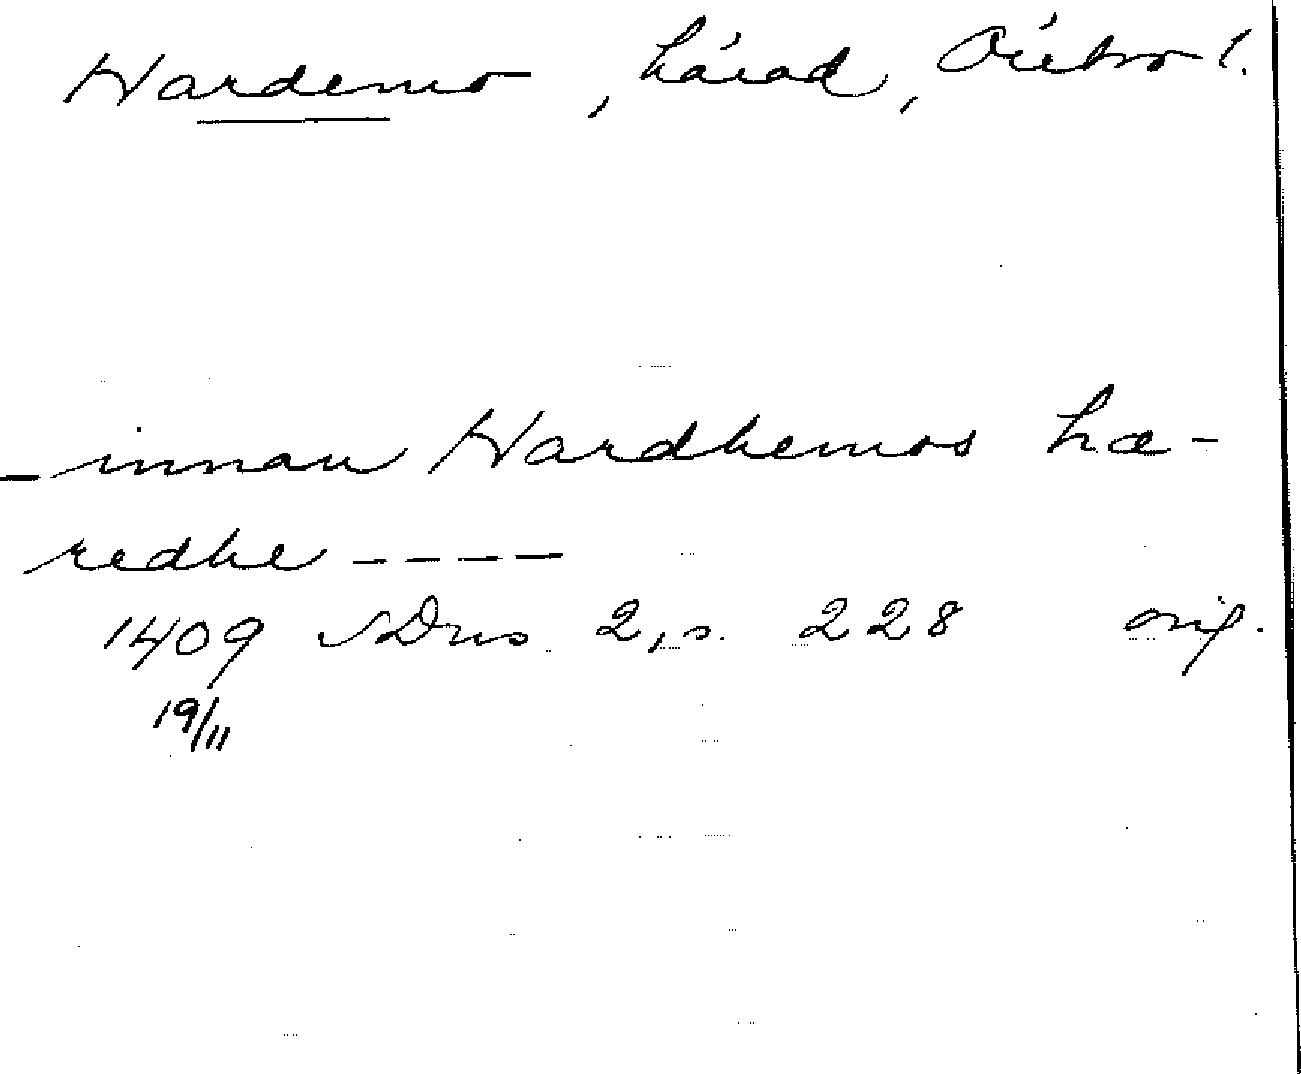 Hardemo, härad, Örebro l.
– innan Hardhemos hæ-
redhe ----
1409 SDns 2, s. 228 orig.
19/11